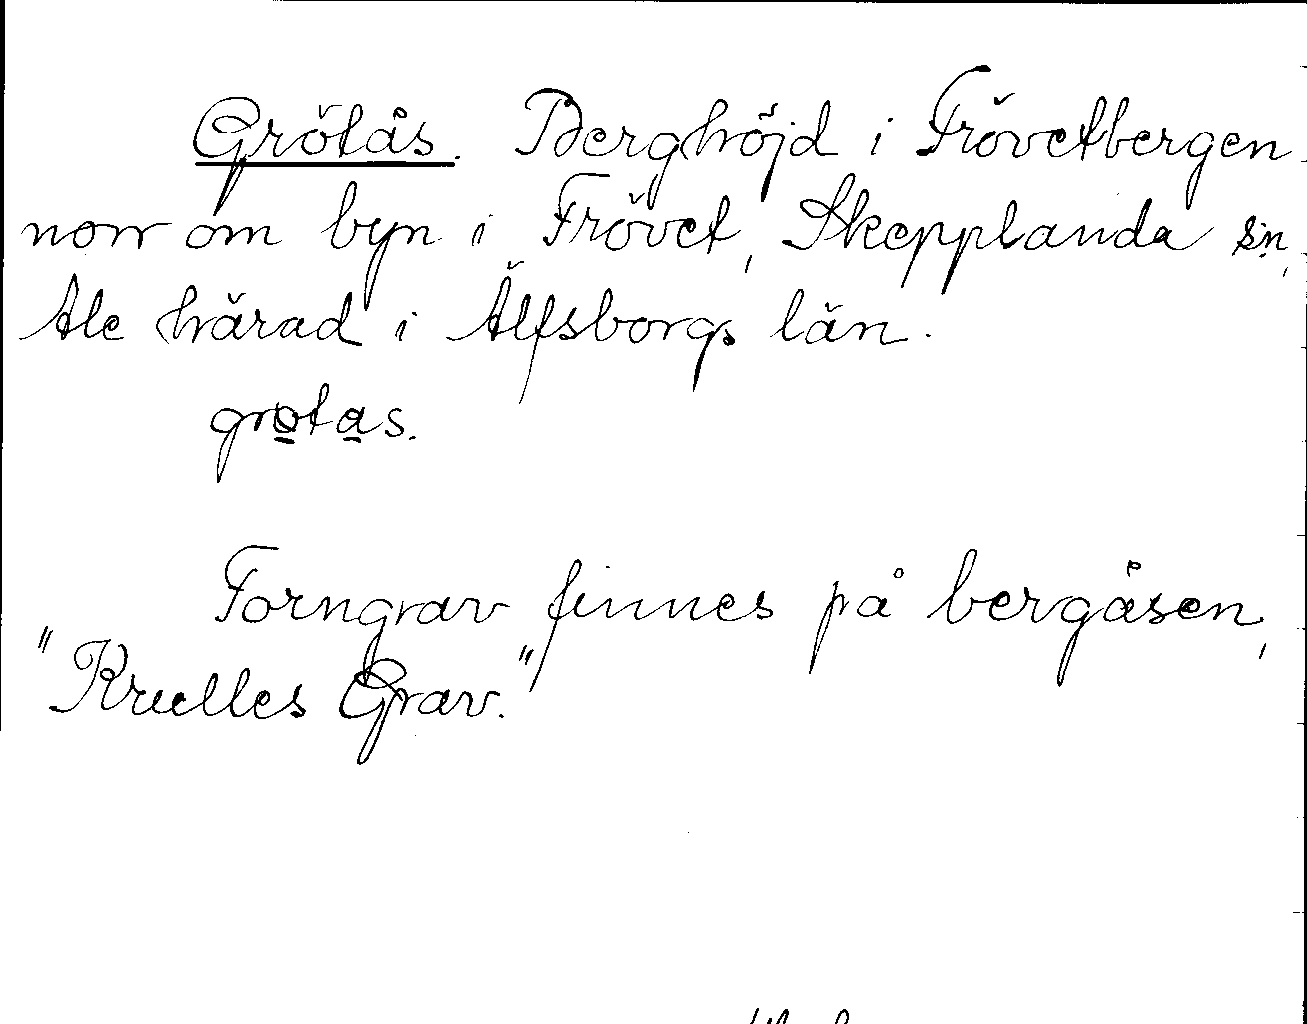 Grötås. Berghöjd i Frövetbergen
norr om byn i Frövet, Skepplanda sn,
Ale härad i Älfsborgs län.
grotas.
Forngrav finnes på bergåsen,
"Kruelles Grav."